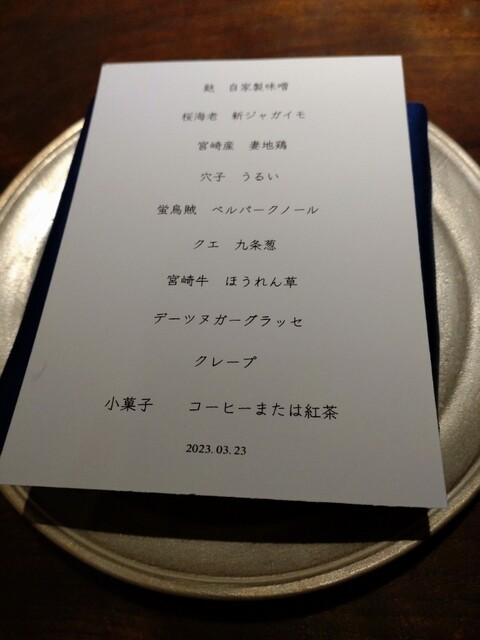 麩 自家製味噌
桜海老 新ジャガイモ
宮崎産 妻地鶏
穴子 うるい
蛍烏賊 ペルパークノール
クエ 九条葱
宮崎牛 ほうれん草
デーツヌガーグラッセ
クレープ
小菓子 コーヒーまたは紅茶
2023.03.23